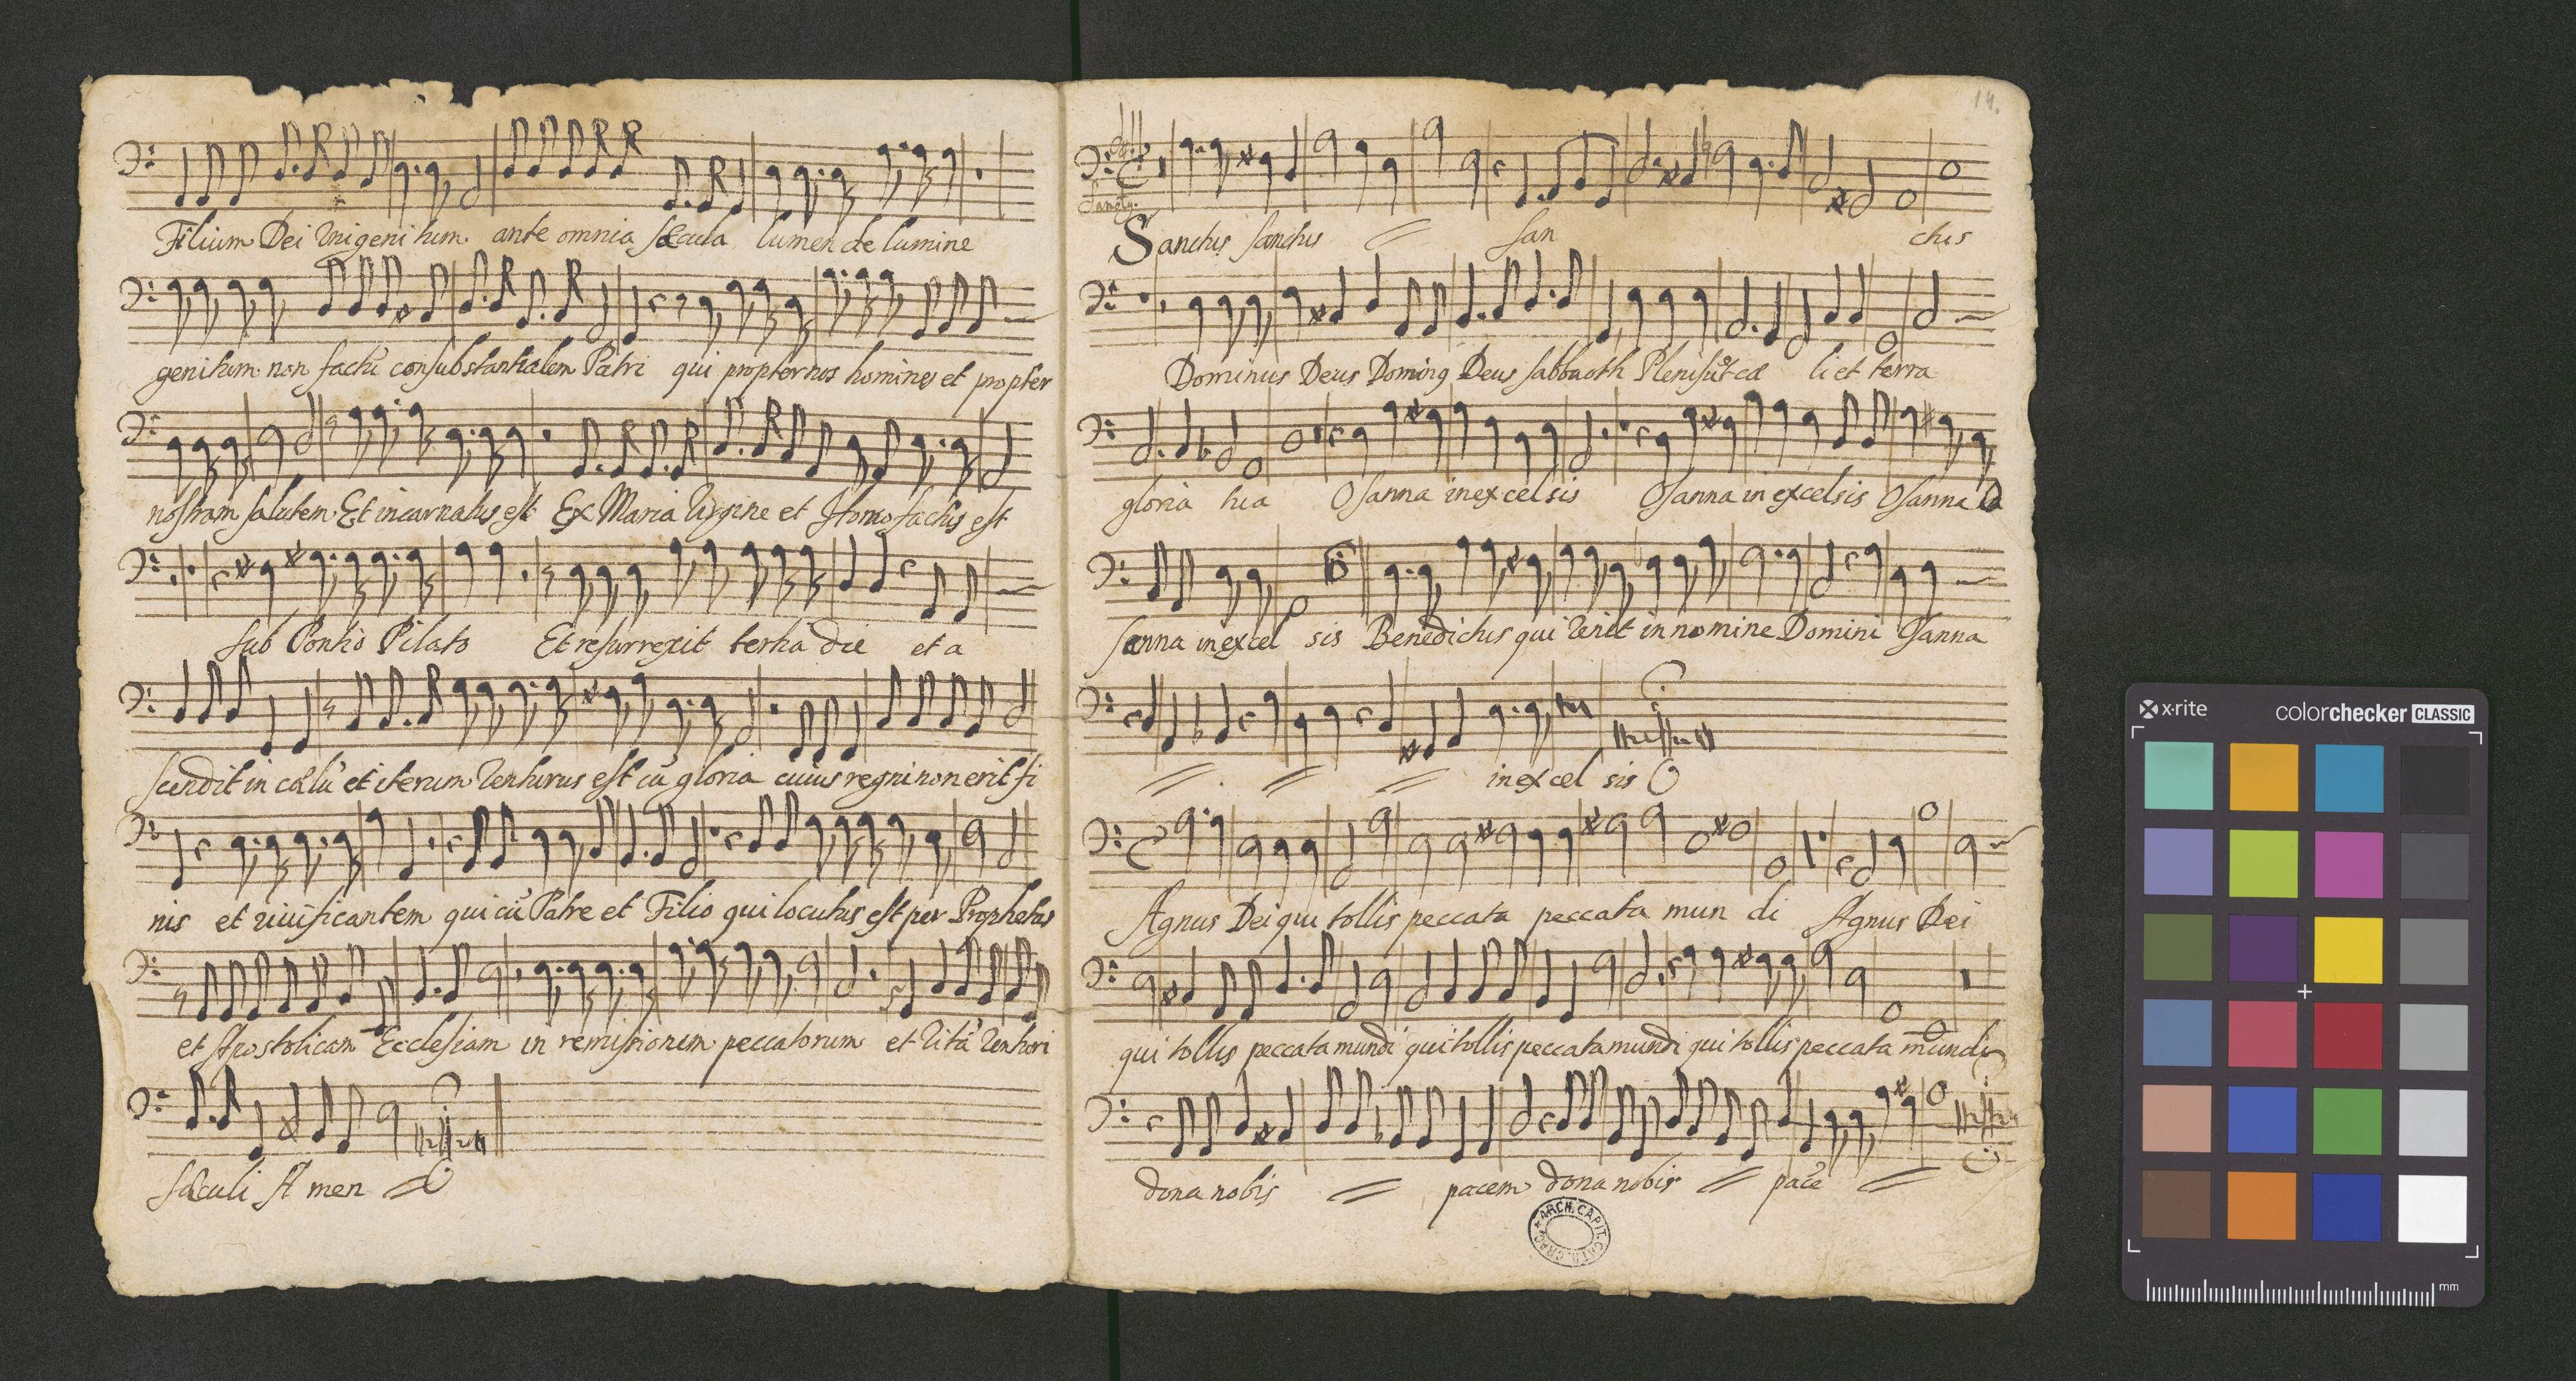 Filium Dei Unigenitum ante omnia sæcula lumen de lumine
genitum non factũ consubstantialem Patri qui propter nos homines et propter
nostram salutem Et incarnatus est Ex Maria Virgine et Homo factus est
sub Pontio Pilato Et resurrexit tertia die et a
scendit in cœlũ et iterum Venturus est cũ gloria cuius regni non erit fi
nis et vivificantem qui cũ Patre et Filio qui locutus est per Prophetas
et Apostolicam Ecclesiam in remissionem peccatorum et Vitã Venturi
sæculi A men
14.
Sanctus sanctus san ctus
Dominus Deus Deus sabbaoth Pleni cæ li et terra
gloria tua Osanna in excelsis Osanna in excelsis Osanna
sanna in excel sis Benedictus qui Venit in nomine Domini Osanna
in excel sis
Agnus Dei qui tollis peccata peccata mun di Agnus Dei
qui tollis peccata mundi qui tollis peccata mundi qui tollis peccata mundi
dona nobis pacem dona nobis pacẽ
ARCH. CAPIT. CATH. CRAC.
x-rite
colorchecker CLASSIC
mm